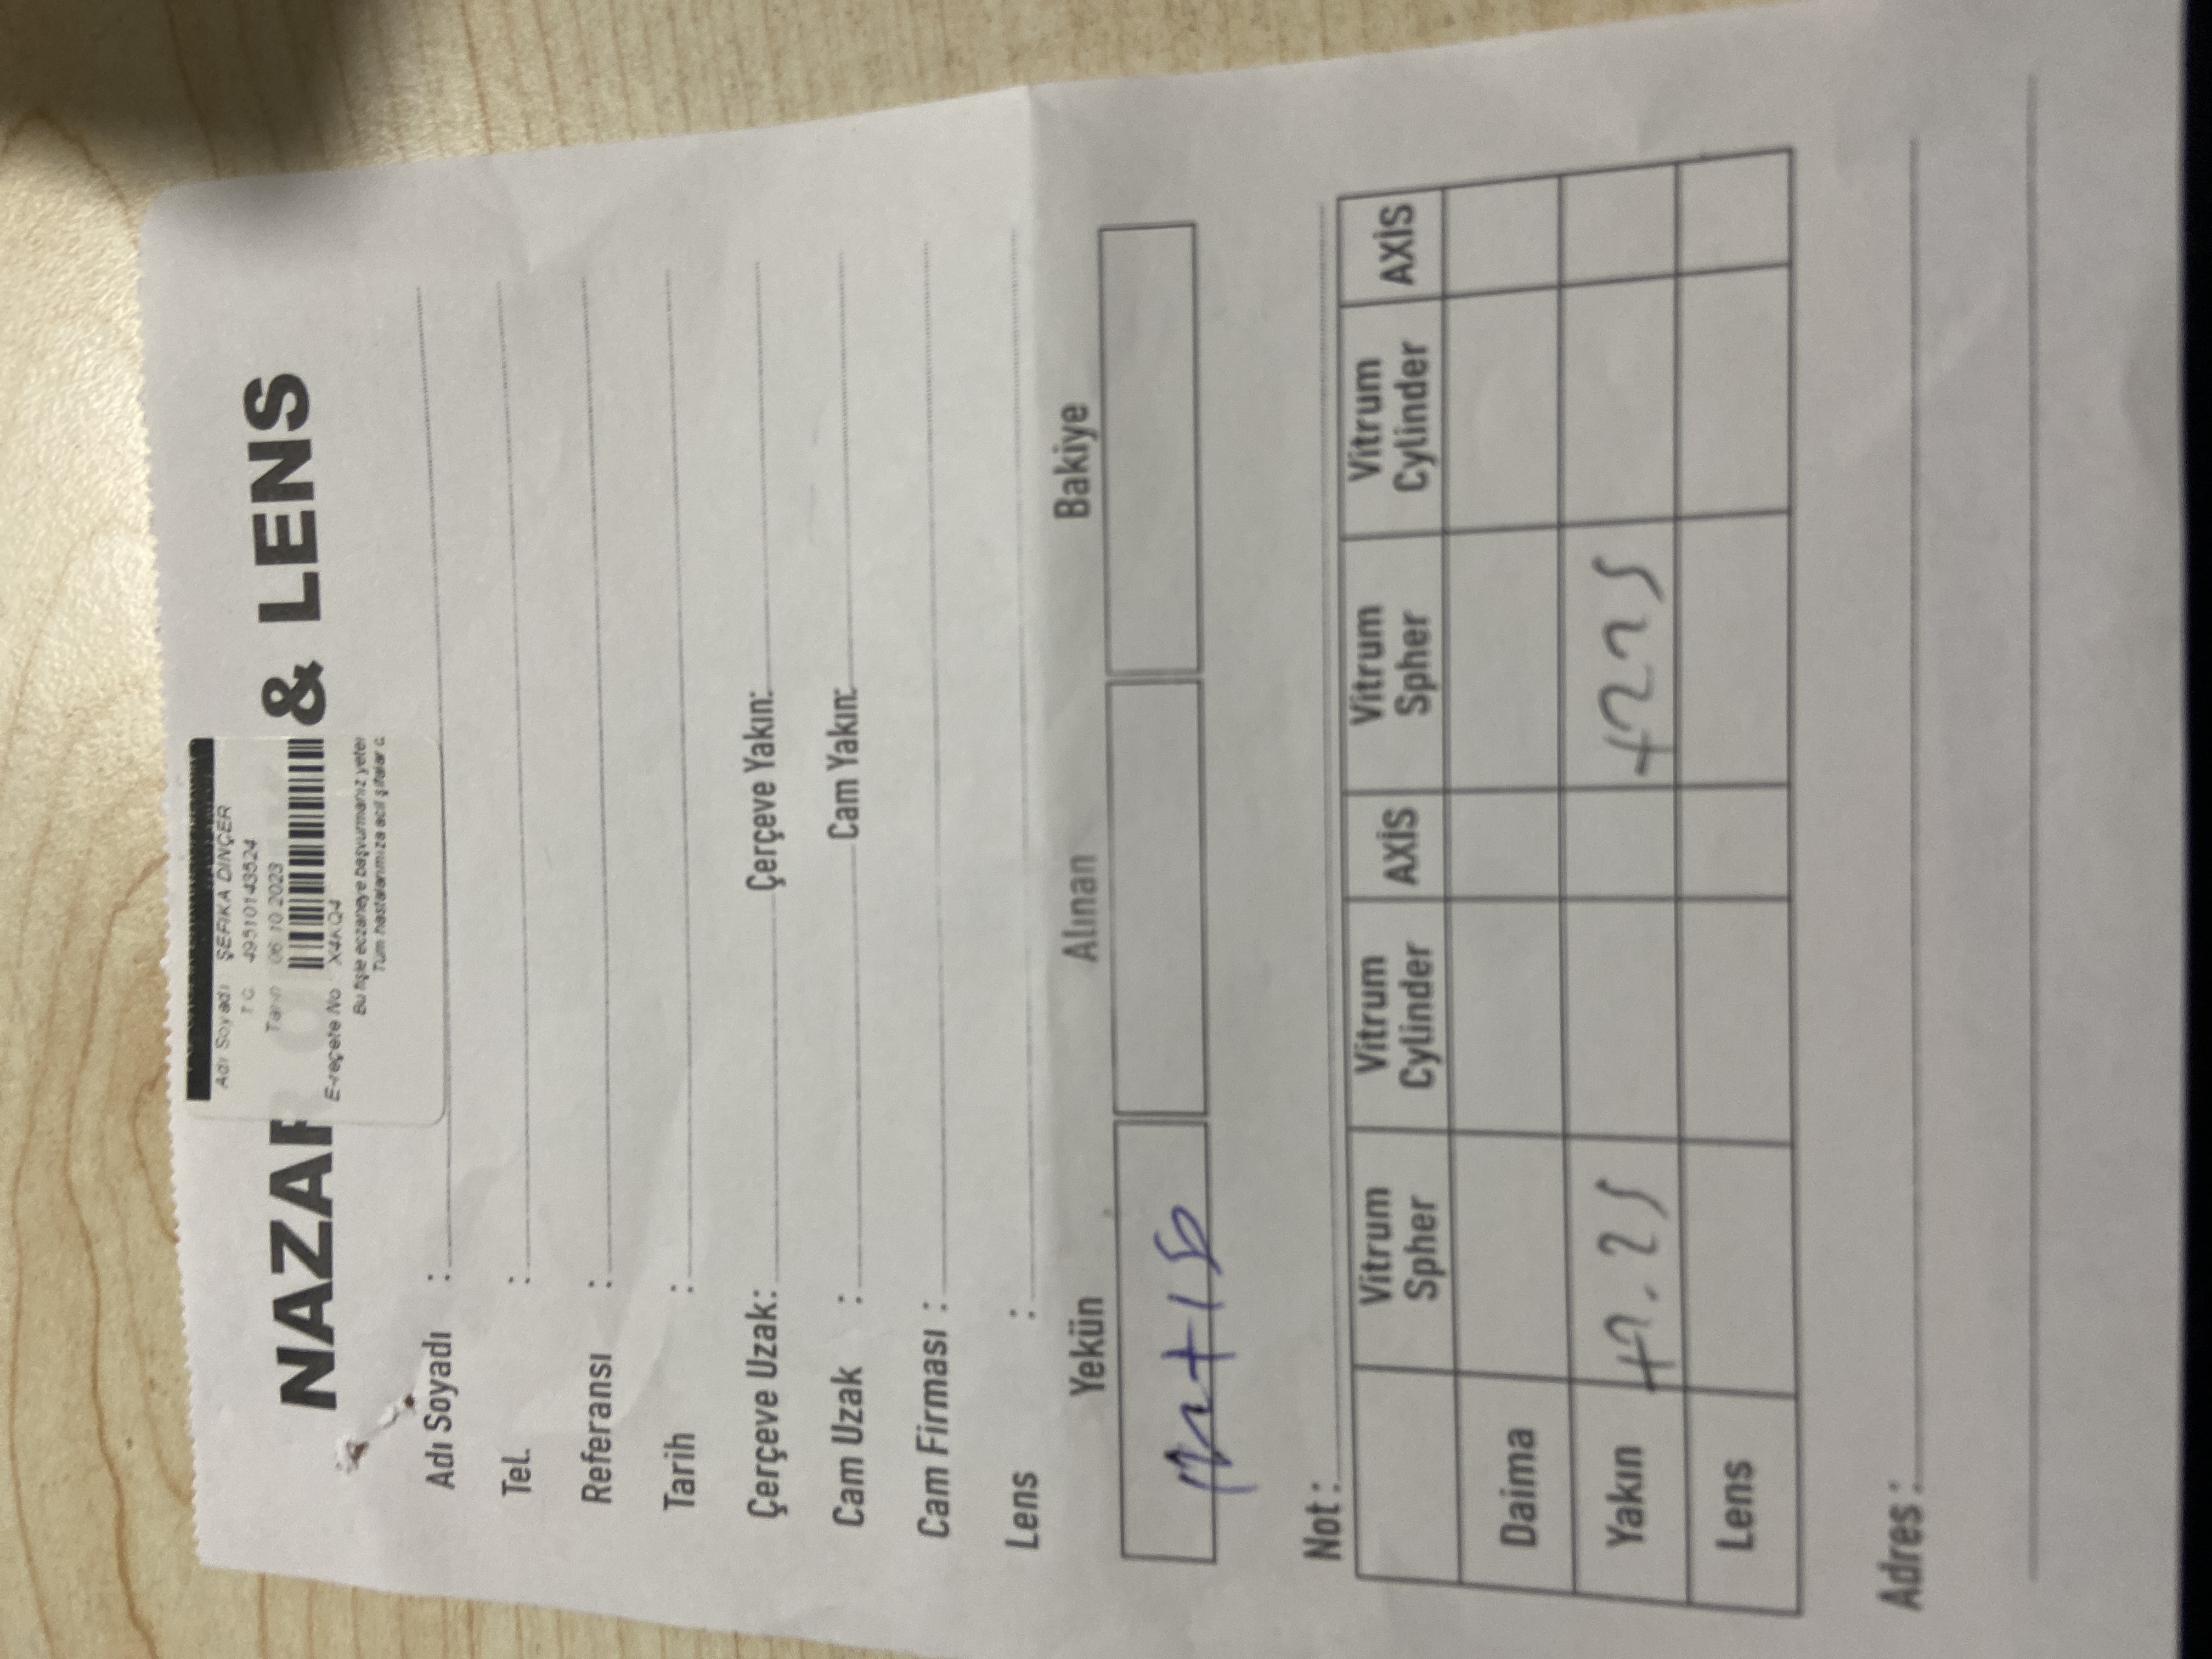 Adı Soyadı ŞEFİKA DİNÇER
TC 49510143524
Tarih 06.10.2023
NAZAR & LENS
E-reçete No: X4KQ4
Bu fişle eczaneye başvurmanız yeter
Tüm hastalarımıza acil şifalar
Adı Soyadı :
Tel. :
Referansı :
Tarih :
Çerçeve Uzak: Çerçeve Yakın:
Cam Uzak : Cam Yakın:
Cam Firması :
Lens :
Yekün Alınan Bakiye
Not :
Vitrum Spher Vitrum Cylinder AXİS Vitrum Spher Vitrum Cylinder AXİS
Daima
Yakın +2.25 +225
Lens
Adres :